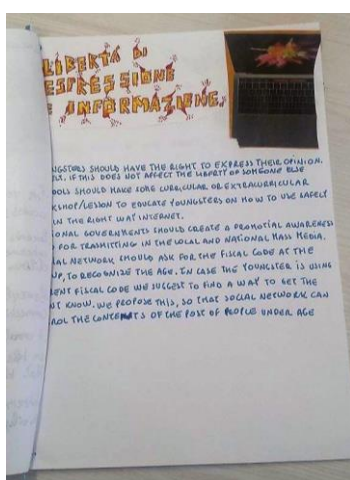 LIBERTÀ DI
ESPRESSIONE
E INFORMAZIONE.
NGSTERS SHOULD HAVE THE RIGHT TO EXPRESS THEIR OPINION.
LT. IF THIS DOES NOT AFFECT THE LIBERTY OF SOMEONE ELSE
OOLS SHOULD HAVE SOME CURRICULAR OR EXTRACURRICULAR
KSHOP/LESSON TO EDUCATE YOUNGSTERS ON HOW TO USE SAFELY
IN THE RIGHT WAY INTERNET.
IONAL GOVERNMENTS SHOULD CREATE A PROMOTIAL AWARENESS
FOR TRASMITTING IN THE LOCAL AND NATIONAL MASS MEDIA.
IAL NETWORK SHOULD ASK FOR THE FISCAL CODE AT THE
UP, TO RECOGNIZE THE AGE. IN CASE THE YOUNGSTER IS USING
ENT FISCAL CODE WE SUGGEST TO FIND A WAY TO GET THE
NT KNOW. WE PROPOSE THIS, SO THAT SOCIAL NETWORK CAN
ROL THE CONTENTS OF THE POST OF PEOPLE UNDER AGE